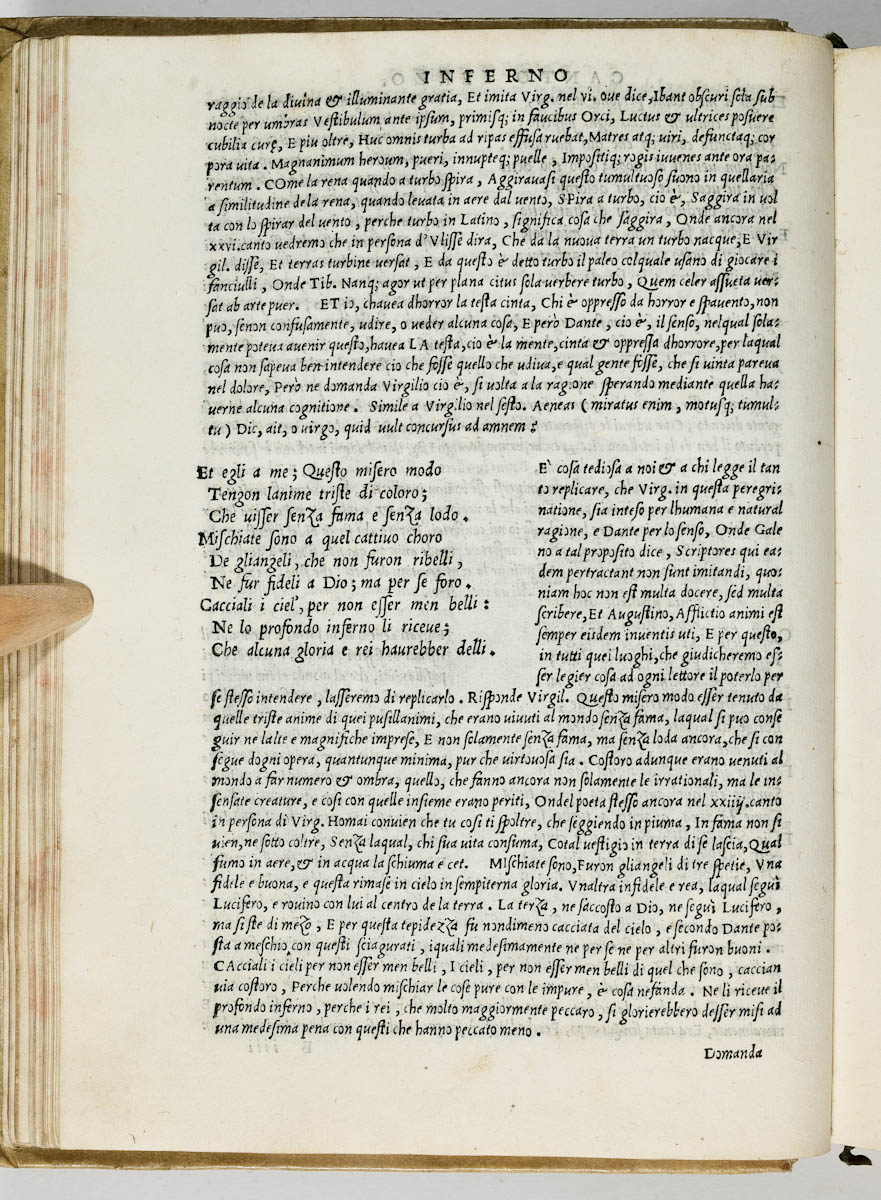 INFERNO
raggio de la divina & illuminante gratia, Et imita Virg. nel vi. oue dice, Ibant obscuri sola sub
nocte per umbras Vestibulum ante ipsum, primisq; in faucibus Orci, Luctus & ultrices posuere
cubilia curę, E piu oltre, Huc omnis turba ad ripas effusa ruebat, Matres atq; uiri, defunctaq; cor
pora uita. Magnanimum heroum, pueri, innupteq; puelle, Impositiq; rogis iuuenes ante ora pa-
rentum. COme la rena quando a turbo spira, Aggirauasi questo tumultuoso suono in quellaria
a similitudine de la rena, quando leuata in aere dal uento, SPira a turbo, cio è, Saggira in uol
ta con lo spirar del uento, perche turbo in Latino, significa cosa che saggira, Onde ancora nel
xxvi.canto uedremo che in persona d'Vlisse dira, Che da la nuoua terra un turbo nacque, E Vir
gil. disse, Et terras turbine uersat, E da questo è detto turbo il paleo colquale usano di giocare i
fanciulli, Onde Tib. Nanq; agor ut per plana citus sola uerbere turbo, Quem celer assueta uer-
sat ab arte puer. ET io, chauea dhorror la testa cinta, Chi è oppresso da horror e spauento, non
puo, senon confusamente, udire, o ueder alcuna cosa, E però Dante, cio è, il senso, nelqual sola-
mente poteua auenir questo, hauea LA testa, cio è la mente, cinta & oppressa dhorrore, per laqual
cosa non sapeua ben intendere cio che fosse quello che udiua, e qual gente fosse, che si uinta pareua
nel dolore, Però ne domanda Virgilio cio è, si uolta a la ragione sperando mediante quella ha-
uerne alcuna cognitione. Simile a Virgilio nel sesto. Aeneas (miratus enim, motusq; tumul-
tu) Dic, ait, o uirgo, quid uult concursus ad amnem?
Et egli a me; Questo misero modo
Tengon lanime triste di coloro;
Che uisser senza fama e senza lodo.
Mischiate sono a quel cattiuo choro
De gliangeli, che non furon ribelli,
Ne fur fideli a Dio; ma per se foro.
Cacciali i ciel', per non esser men belli:
Ne lo profondo inferno li riceue;
Che alcuna gloria e rei haurebber delli.
E' cosa tediosa a noi & a chi legge il tan
to replicare, che Virg. in questa peregri-
natione, sia inteso per lhumana e natural
ragione, e Dante per lo senso, Onde Gale
no a tal proposito dice, Scriptores qui ea-
dem pertractant non sunt imitandi, quo-
niam hoc non est multa docere, sed multa
scribere, Et Augustino, Afflictio animi est
semper eisdem inuentis uti, E per questo,
in tutti quei luoghi, che giudicheremo es-
ser legier cosa ad ogni lettore il poterlo per
se stesso intendere, lasseremo di replicarlo. Risponde Virgil. Questo misero modo esser tenuto da
quelle triste anime di quei pusillanimi, che erano uiuuti al mondo senza fama, laqual si puo conse
guir ne lalte e magnifiche imprese, E non solamente senza fama, ma senza loda ancora, che si con
segue dogni opera, quantunque minima, pur che uirtuosa sia. Costoro adunque erano uenuti al
mondo a far numero & ombra, quello, che fanno ancora non solamente le irrationali, ma le in-
sensate creature, e cosi con quelle insieme erano periti, Ondel poeta stesso ancora nel xxiiij.canto
in persona di Virg. Homai conuien che tu cosi ti spoltre, che seggiendo in piuma, In fama non si
uien, ne sotto coltre, Senza laqual, chi sua uita consuma, Cotal uestigio in terra di se lascia, Qual
fumo in aere, & in acqua la schiuma e cet. MIschiate sono, Furon gliangeli di tre spetie, Vna
fidele e buona, e questa rimase in cielo in sempiterna gloria. Vnaltra infidele e rea, laqual seguì
Lucifero, e rouino con lui al centro de la terra. La terza, ne saccosto a Dio, ne seguì Lucifero,
ma si ste di mezo, E per questa tepidezza fu nondimeno cacciata del cielo, e secondo Dante po-
sta a meschio con questi sciagurati, iquali medesimamente ne per se ne per altri furon buoni.
CAcciali i cieli per non esser men belli, I cieli, per non esser men belli di quel che sono, caccian
uia costoro, Perche uolendo mischiar le cose pure con le impure, è cosa nefanda. Ne li riceue il
profondo inferno, perche i rei, che molto maggiormente peccaro, si glorierebbero desser misi ad
una medesima pena con questi che hanno peccato meno.
Domanda